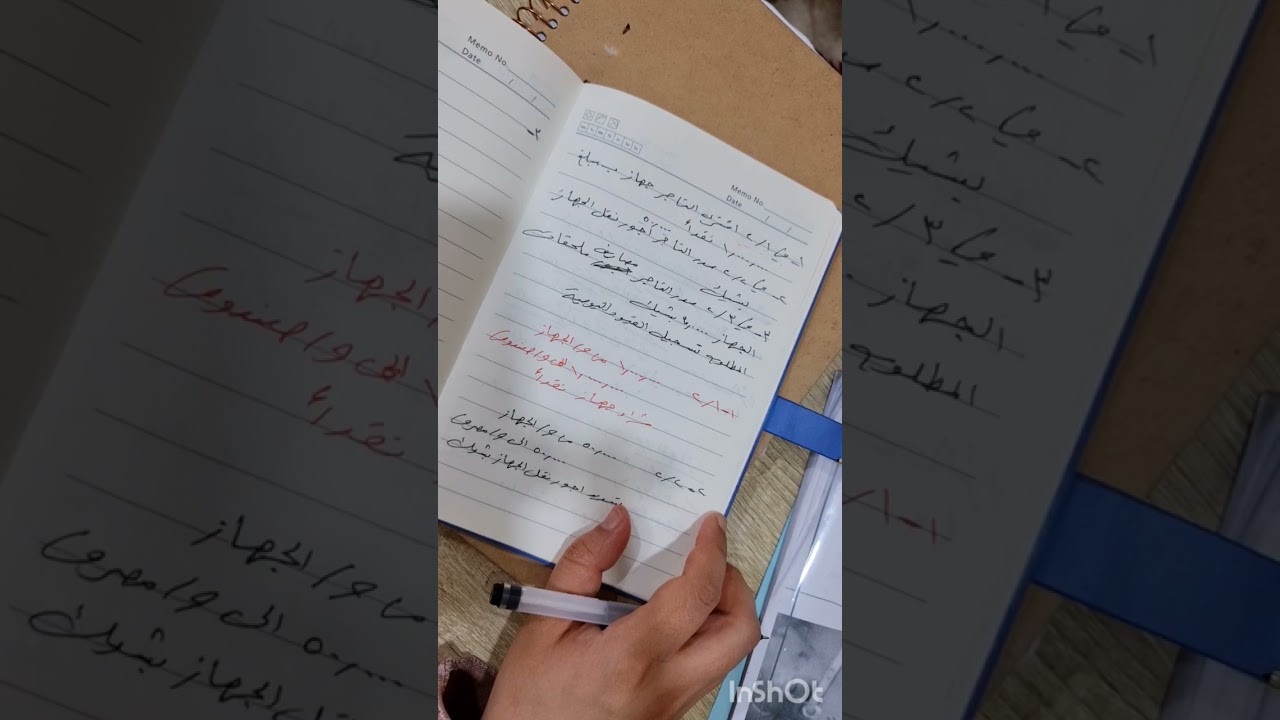 Memo No.
Date / /
٣-
Memo No.
Date / /
١- في ٢/١ اشترى التاجر جهاز بـ مبلغ
١٠٠٠٠٠٠ نقداً
٢- في ٢/٢ سدد التاجر اجور نقل الجهاز ٥٠٠٠٠
بشيك
٣- في ٢/٣ سدد التاجر مصاريف ملحقات
الجهاز بشيك
المطلوب تسجيل القيود اليومية
١- ٢/١ ١٠٠٠٠٠٠ من ح/ الجهاز
١٠٠٠٠٠٠ الى ح/ الصندوق
شراء جهاز نقداً
٢- ٢/٢ ٥٠٠٠٠ من ح/ الجهاز
٥٠٠٠٠ الى ح/ المصرف
تسديد اجور نقل الجهاز بشيك
InShOt